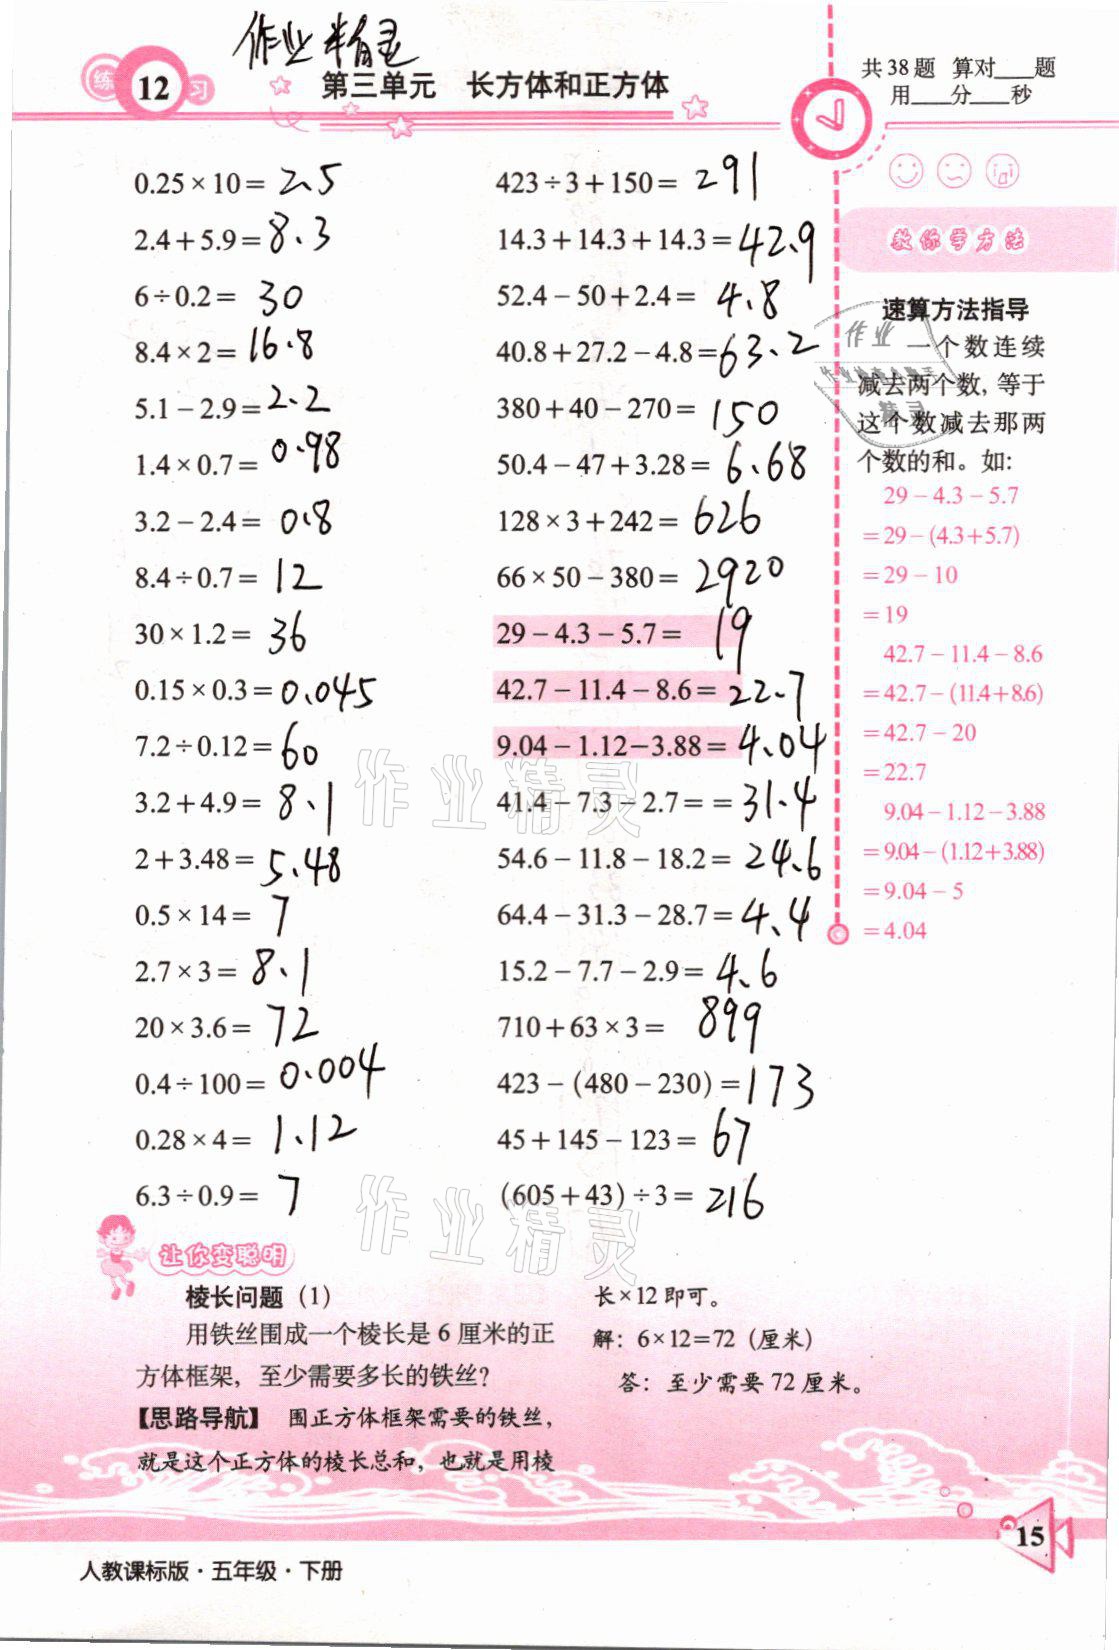 作业精灵
练 12 习
第三单元 长方体和正方体
共38题 算对___题
用___分___秒
0.25×10=2.5
2.4+5.9=8.3
6÷0.2=30
8.4×2=16.8
5.1-2.9=2.2
1.4×0.7=0.98
3.2-2.4=0.8
8.4÷0.7=12
30×1.2=36
0.15×0.3=0.045
7.2÷0.12=60
3.2+4.9=8.1
2+3.48=5.48
0.5×14=7
2.7×3=8.1
20×3.6=72
0.4÷100=0.004
0.28×4=1.12
6.3÷0.9=7
423÷3+150=291
14.3+14.3+14.3=42.9
52.4-50+2.4=4.8
40.8+27.2-4.8=63.2
380+40-270=150
50.4-47+3.28=6.68
128×3+242=626
66×50-380=2920
29-4.3-5.7=19
42.7-11.4-8.6=22.7
9.04-1.12-3.88=4.04
41.4-7.3-2.7==31.4
54.6-11.8-18.2=24.6
64.4-31.3-28.7=4.4
15.2-7.7-2.9=4.6
710+63×3=899
423-(480-230)=173
45+145-123=67
(605+43)÷3=216
教你学方法
速算方法指导
一个数连续
减去两个数,等于
这个数减去那两
个数的和。如:
29-4.3-5.7
=29-(4.3+5.7)
=29-10
=19
42.7-11.4-8.6
=42.7-(11.4+8.6)
=42.7-20
=22.7
9.04-1.12-3.88
=9.04-(1.12+3.88)
=9.04-5
=4.04
作业精灵
作业精灵
让你变聪明
棱长问题(1)
用铁丝围成一个棱长是6厘米的正
方体框架,至少需要多长的铁丝?
【思路导航】 围正方体框架需要的铁丝,
就是这个正方体的棱长总和,也就是用棱
长×12即可。
解:6×12=72(厘米)
答:至少需要72厘米。
15
人教课标版·五年级·下册